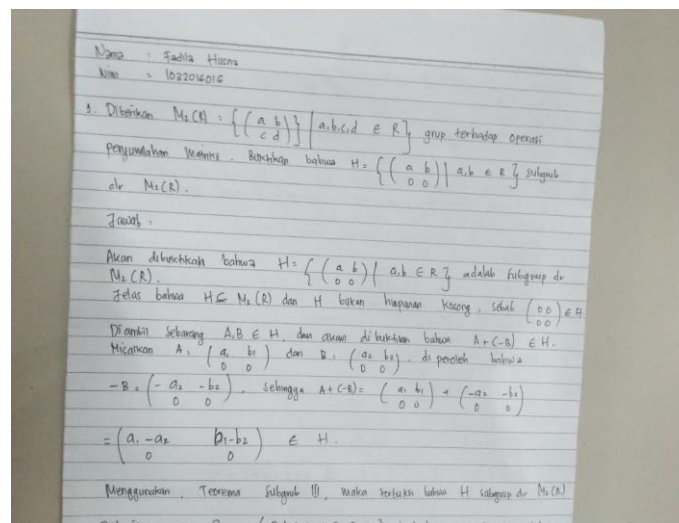 Nama : Fadila Husna
Nim : 1022016016
1. Diberikan M₂(R) = {( a b / c d )} | a,b,c,d ∈ R} grup terhadap operasi
penjumlahan matriks. Buktikan bahwa H = {( a b / 0 0 ) | a,b ∈ R} subgrub
dr M₂(R).
Jawab :
Akan dibuktikan bahwa H = {( a b / 0 0 ) | a,b ∈ R} adalah subgroup dr
M₂(R).
Jelas bahwa H ⊆ M₂(R) dan H bukan himpunan kosong, sebab ( 0 0 / 0 0 ) ∈ H
Diambil sebarang A,B ∈ H, dan akan dibuktikan bahwa A+(-B) ∈ H.
Misalkan A = ( a₁ b₁ / 0 0 ) dan B = ( a₂ b₂ / 0 0 ), di peroleh bahwa
-B = ( -a₂ -b₂ / 0 0 ), sehingga A+(-B) = ( a₁ b₁ / 0 0 ) + ( -a₂ -b₂ / 0 0 )
= ( a₁-a₂ b₁-b₂ / 0 0 ) ∈ H.
Menggunakan Teorema Subgrub !!!, maka terbukti bahwa H subgroup dr M₂(R)